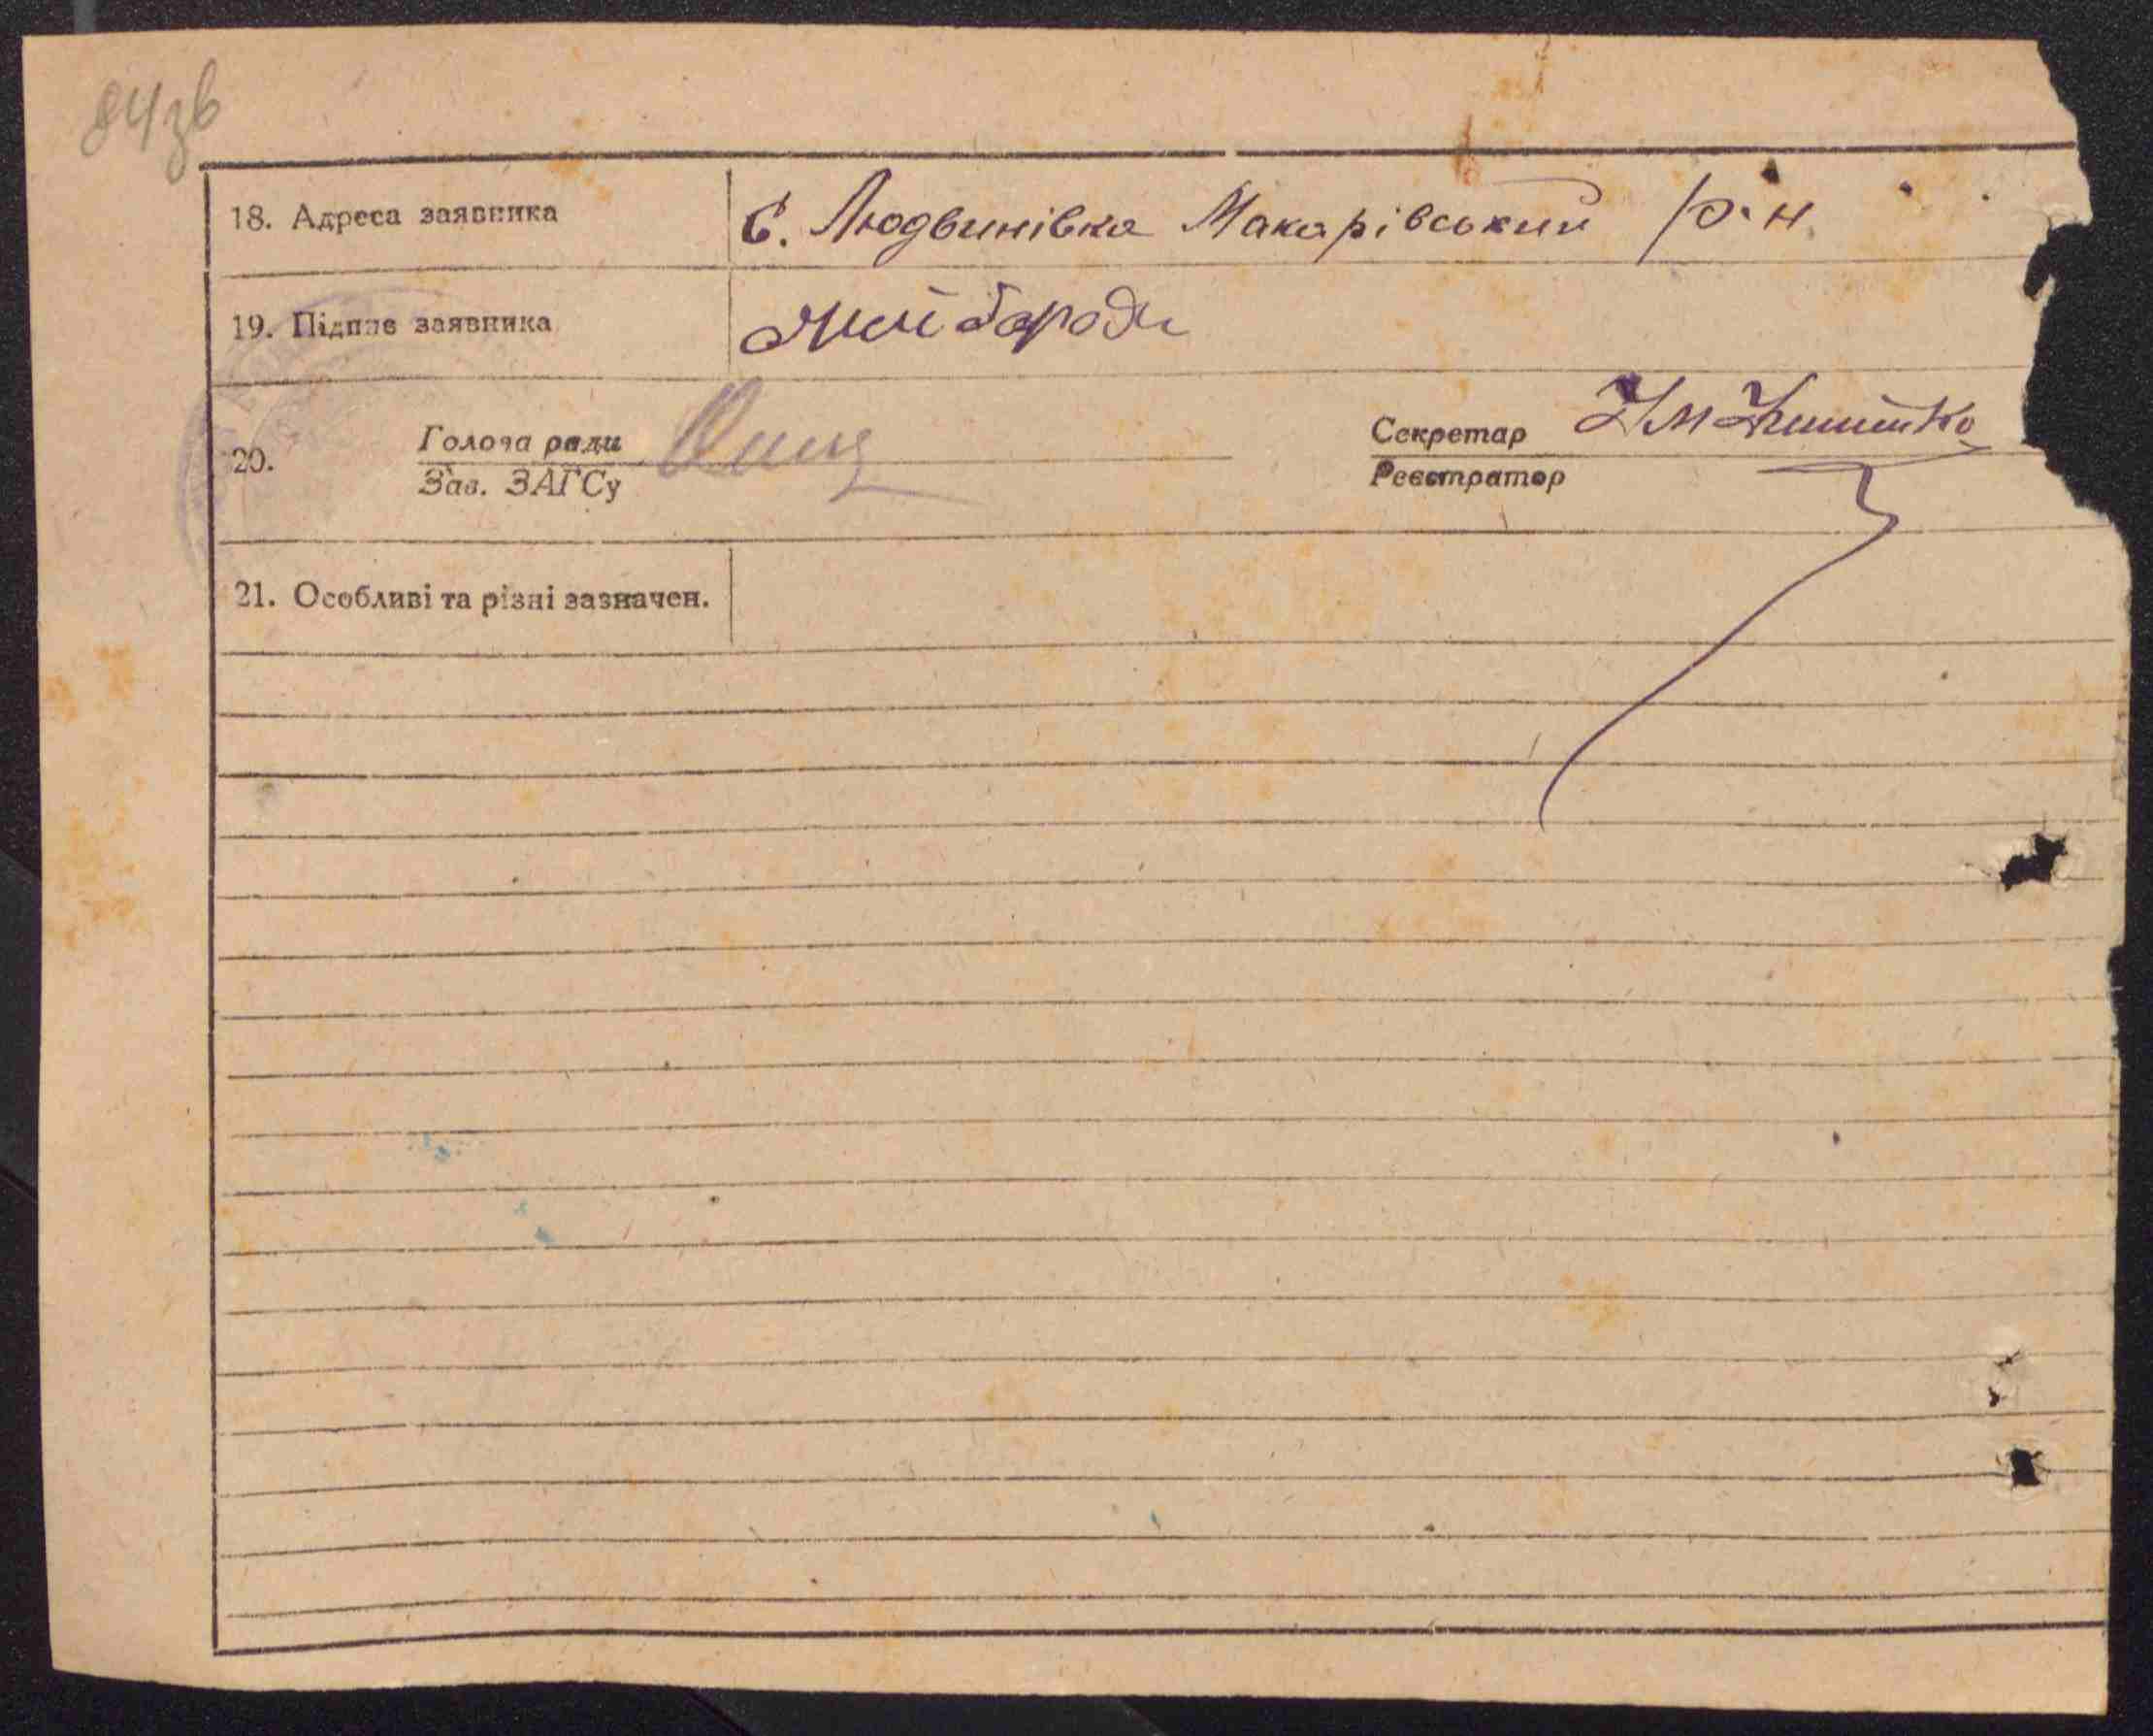 84зв
18. Адреса заявника с. Людвинівка Макарівський р-н
19. Підпис заявника
20. Голова ради Секретар
Зав. ЗАГСу Реєстратор
21. Особливі та різні зазначен.